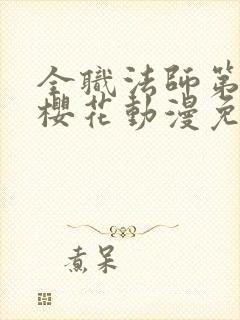 全職法師第
櫻花動漫免
煮呆